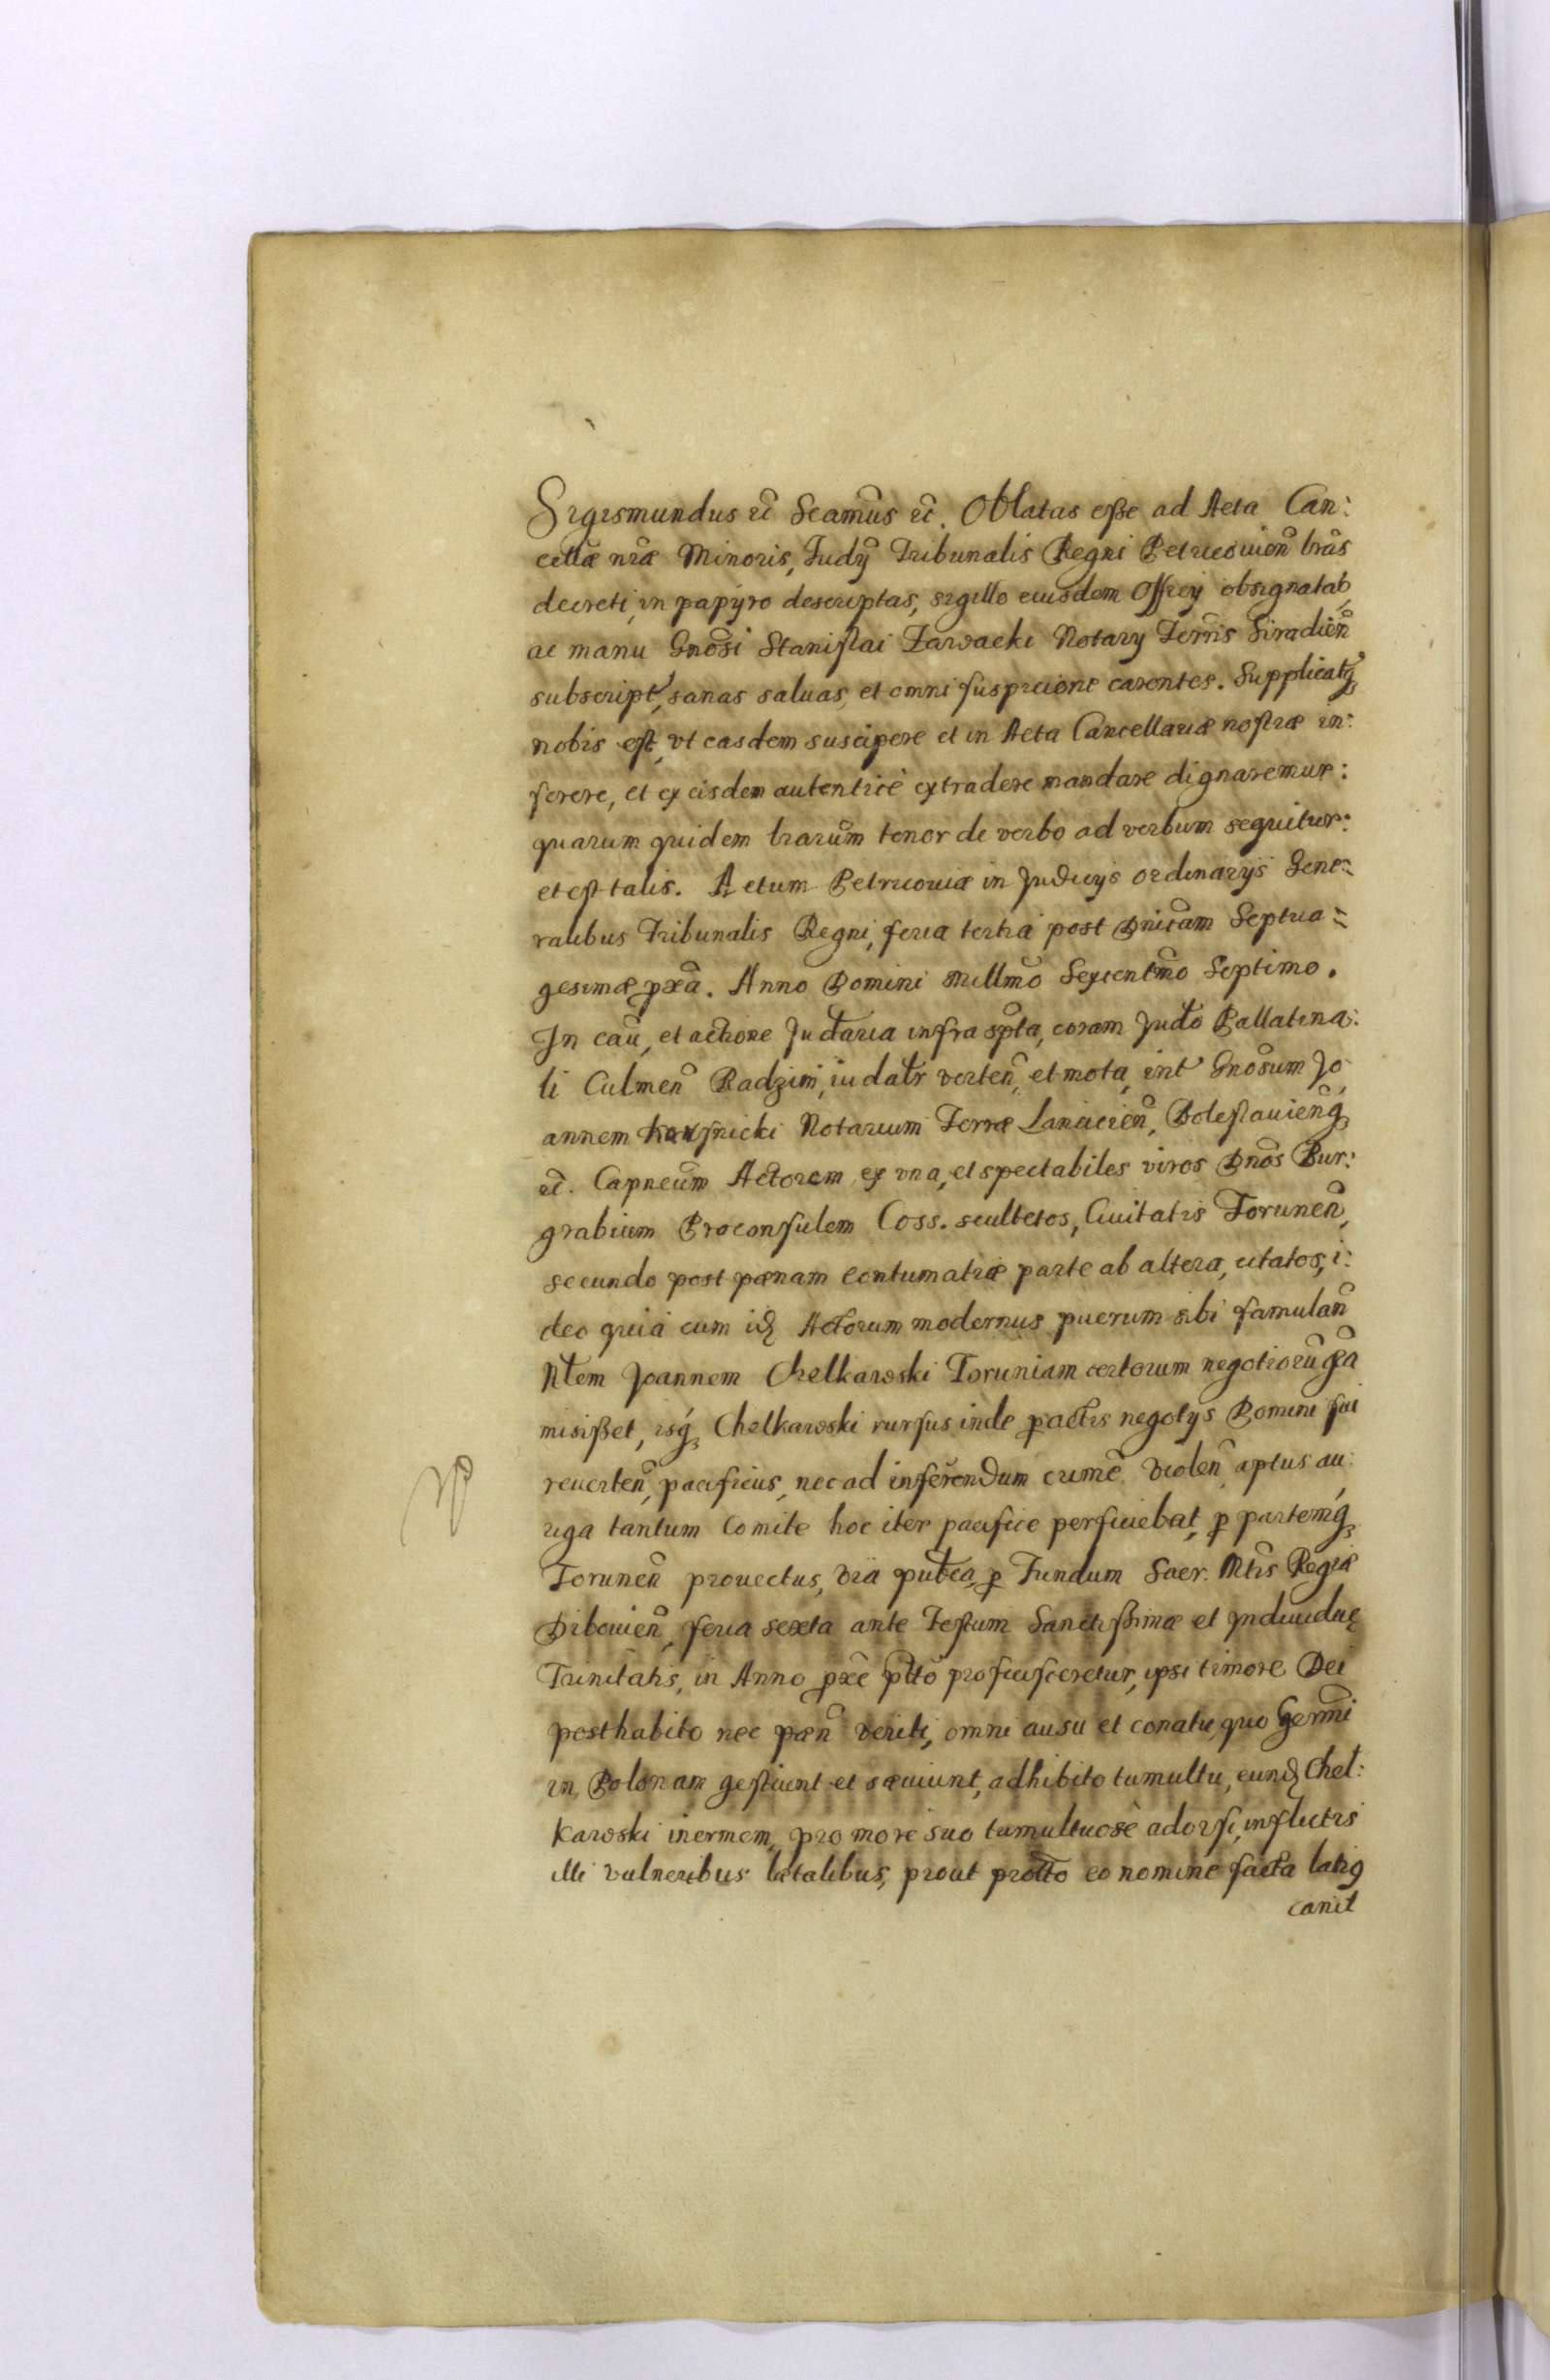 Sigismundus etc̃ Scamũs etc̃. Oblatas eſße ad Acta Can:
cellæ nr̃æ Minoris, Judÿ Tribunalis Regni Petricouien̄ lr̃as
decreti, in papÿro descriptas, sigillo eiusdem Officÿ obsignatas,
ac manu Gnõsi Staniſlai Zawacki Notarÿ Terris Siradien̄
subscript', sanas saluas, et omni ſuspicione carentes. Supplicatq́
nobis eſt, vt easdem suscipere et in Acta Cancellariæ noſtræ in:
ſerere, et ex eisdem autenticè extradere mandare dignaremur:
quarum quidem lrarũm tenor de verbo ad verbum sequitur:
et eſt talis. Actum Petricouiæ in Judicÿs ordinarÿs Gene:
ralibus Tribunalis Regni, feria tertia post Dnicãm Septua=
gesimæ p̱x̃a. Anno Domini Millmõ Sexcentmõ Septimo.
In caũ, et actione Judtaria infra sp̃ta, coram Judto Pallatina:
li Culmen̄ Radzim, iudatr verten̄, et mota, int' Gnõsum Jo
annem koxſnicki Notarium Terræ Lanicien̄, Boleſlauien̄q́
etc̃. Capneũm Actorem ex vna, et spectabiles viros Dnõs Bur:
grabium Proconſulem Coss. scultetos, Ciuitatis Torunen̄,
secundo post pænam contumatiæ parte ab altera, citatos, i:
deo quià cum idꝫ Actorum modernus puerum sibi famulan̄
Ntem Joannem Chelkawski Toruniam certorum negotiorũ gr̃a
misißet, isq́ Chelkawski rurſus inde p̱actis negotÿs Domini ſui
reuerten̄, pacificus, nec ad inferendum crimẽ violen̄ aptus au:
riga tantum Comite hoc iter pacifice perficiebat, p̱ partemq́
Torunen̄ prouectus, via putca, p̱ Fundum Sacr. Mtis Regiæ
Dibouien̄, feria sexta ante Feſtum Sanctiſsimæ et Indiuiduę
Trinitatis, in Anno p̱xẽ pttõ proficiſceretur, ipsi timore Dei
posthabito nec pæn̄ veriti, omni ausu et conatu, quo Germ̃i
in Polonam geſtiunt et sæuiunt, adhibito tumultu, eundꝫ Chel:
kawski inermem, pro more suo tumultuosè adorſi, inflictis
illi vulneribus letalibus, prout protto eo nomine facta latiꝯ
canit